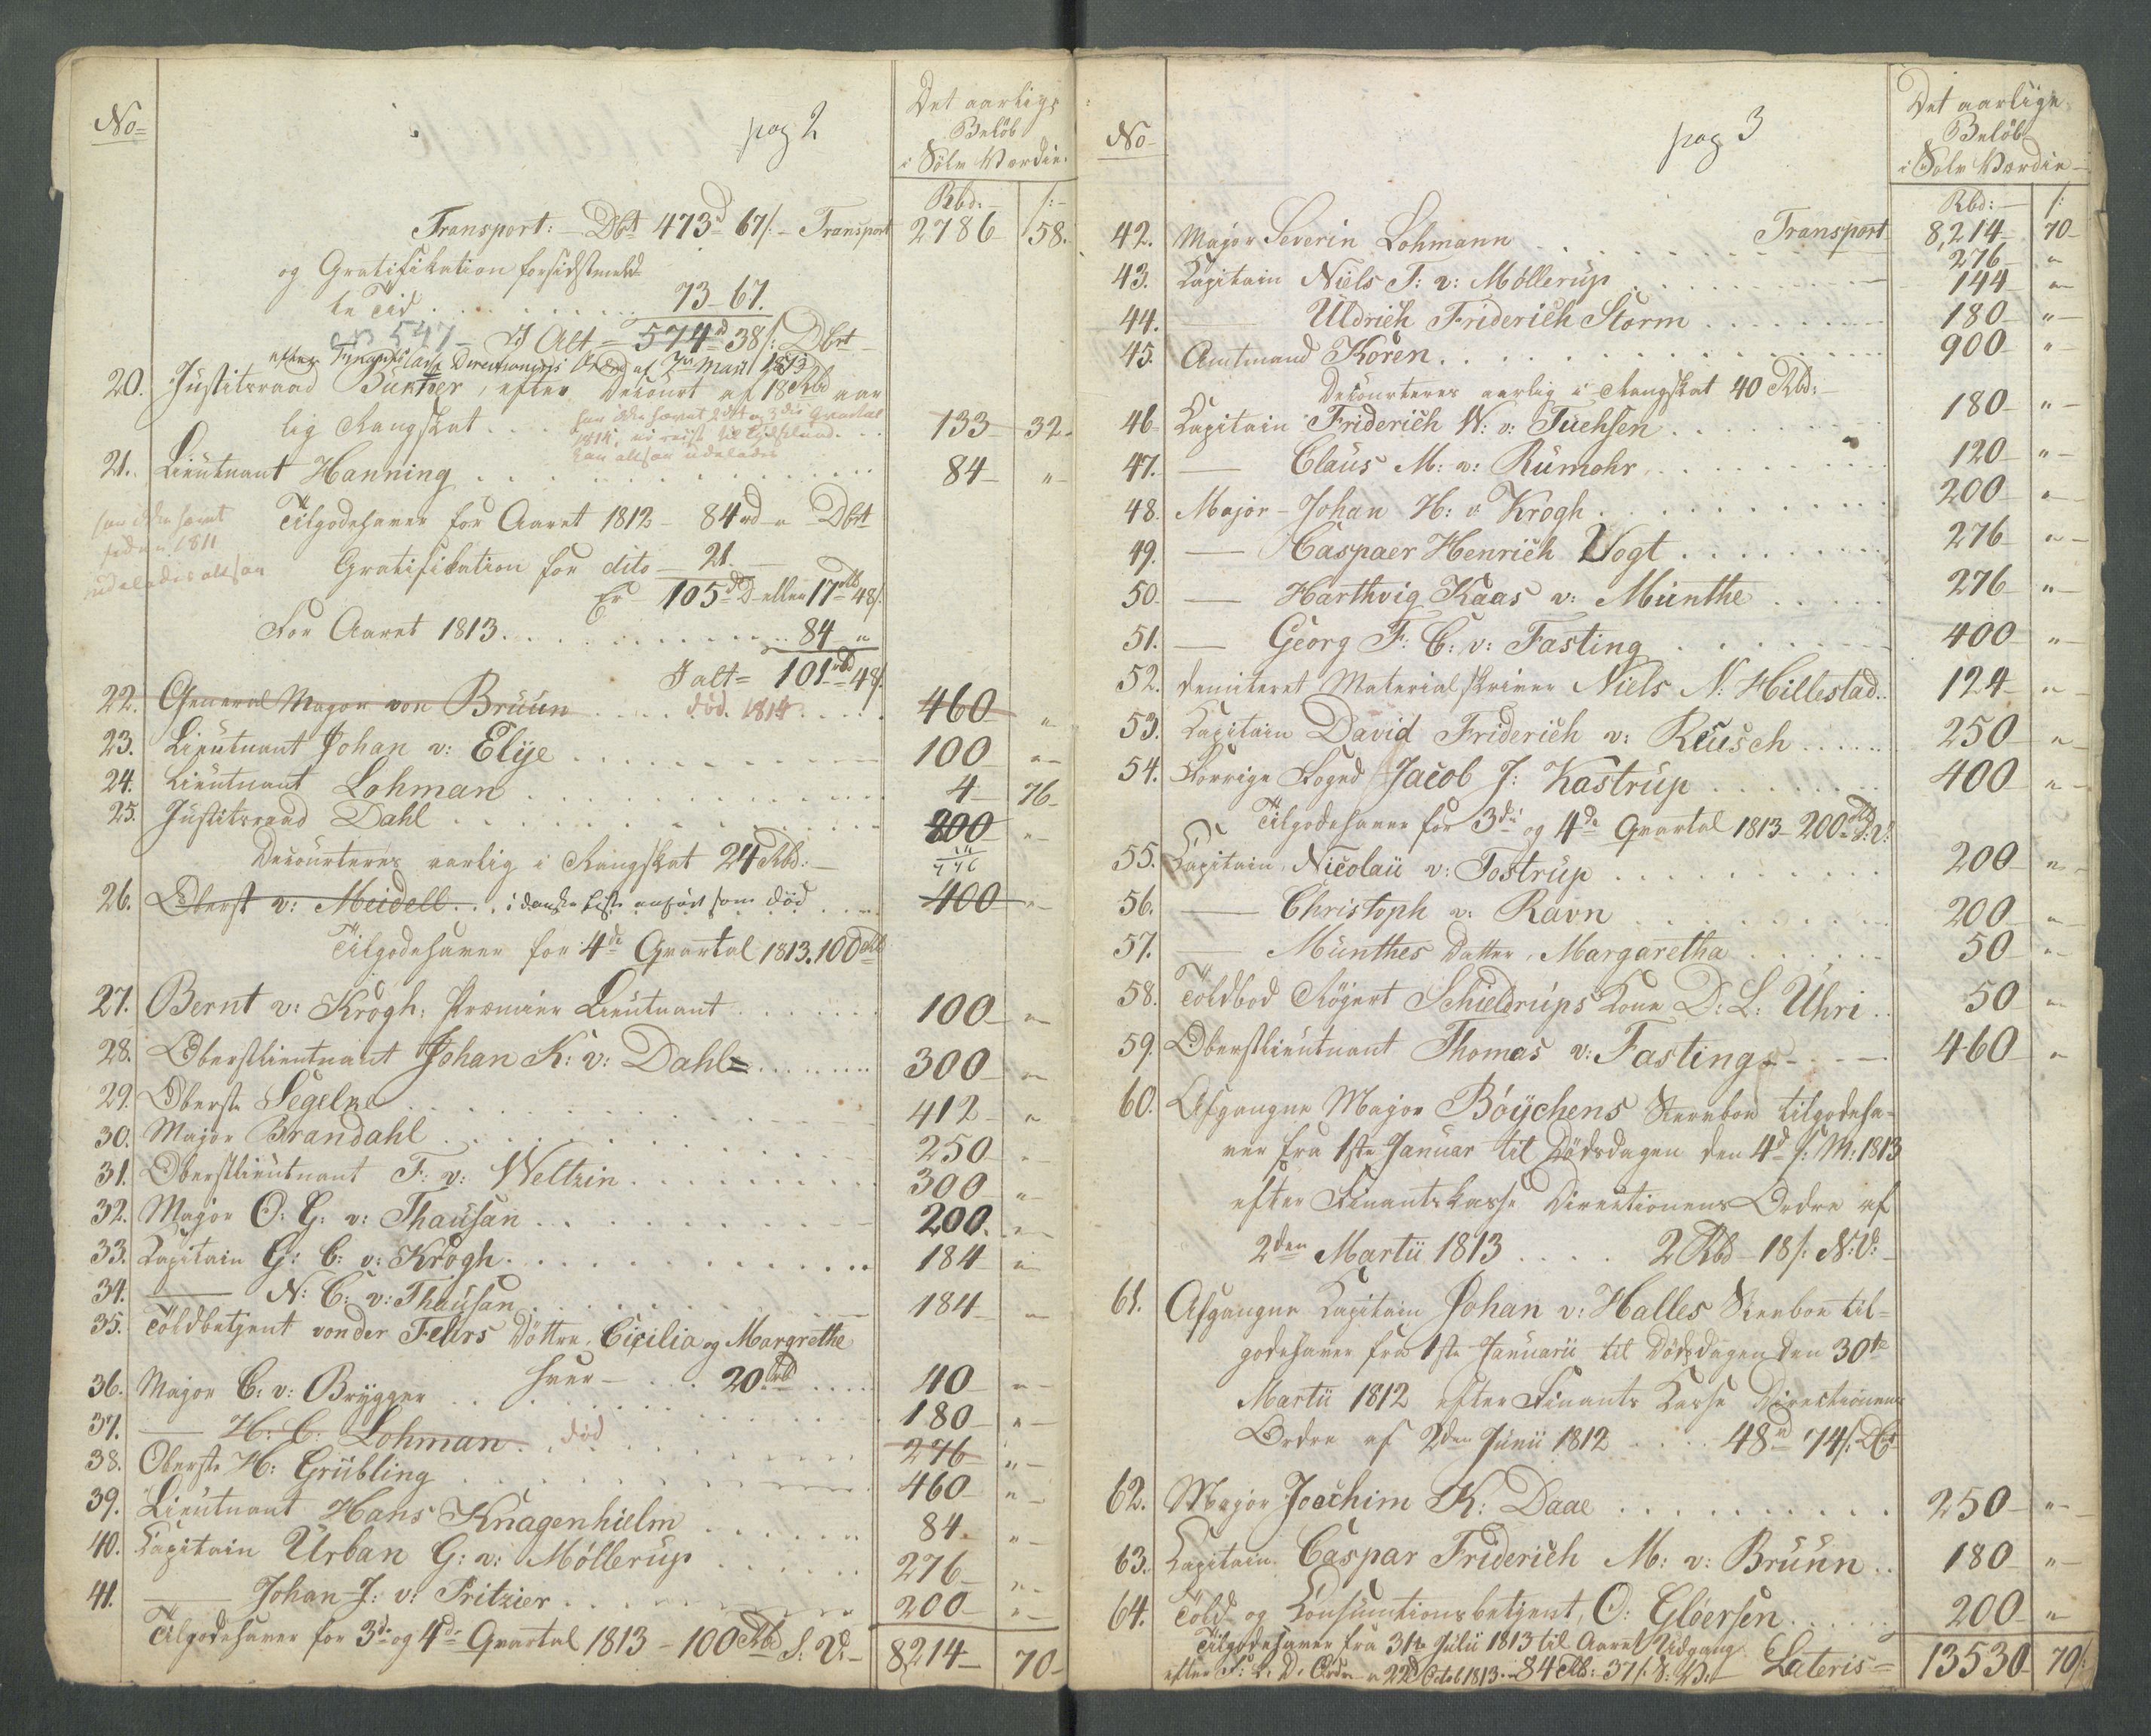 No
pag 2
Det aarlige
Beløb
i Sølv Værdie.
Rbd:
s:
Transport: Dbt 473 67 s: Transport 2786 58.
og Gratifikation for sidstmeld-
te Tid . . . 73 67.
547 I Alt = 574 38 s: Dbt
20. Justitsraad Buntzer, efter Decourt af 18 Rbd aar
lig Rangskat . . . 133 32.
har ikke hævet 2det og 3die Qvartal
1814,
kan altsaa udelades
21. Lieutnant Hanning . . . 84 "
Tilgodehaver for Aaret 1812 84 rd " Dbt
har ikke hævet
siden 1811
udelades altsaa
Gratifikation for dito 21.
Er 105 D eller 17 48 s
For Aaret 1813 . . . 84 "
I alt = 101 rbd 48 s.
22. General Major von Bruun . . . død 1814 . . . 460 "
23. Lieutnant Johan v: Elÿe . . . 100 "
24. Lieutnant Lohman . . . 4 76
25. Justitsraad Dahl . . . 200 "
Decourteres aarlig i Rangskat 24 Rbd:
176
26. Oberst v: Meidell . . . i danske Liste anført som død . . . 400 "
Tilgodehaver for 4de Qvartal 1813. 100 Rbd
27. Bernt v: Krogh, Premier Lieutnant . . . 100 "
28. Oberstlieutnant Johan K: v: Dahl = . . . 300 "
29. Oberste Segelke . . . 412 "
30. Major Brandahl . . . 250 "
31. Oberstlieutnant F: v: Weltzin . . . 300 "
32. Major O: G: v: Thausan . . . 200. "
33. Kapitain G: C: v: Krogh . . . 184 "
34. — N: C: v: Thausan . . . 184 "
35. Toldbetjent von der Fehrs Døttre, Cicilia og Margrethe
hver — 20 rbd . . . 40 "
36. Major C: v: Brygger . . . 180 "
37. — H: C: Lohman . . død . . . 276 "
38. Oberste H: Grübling . . . 460 "
39. Lieutnant Hans Knagenhielm . . . 84 "
40. Kapitain Urban G: v: Møllerup . . . 276 "
41. — Johan J: v: Fritzier . . . 200 "
Tilgodehaver for 3de og 4de Qvartal 1813 — 100 Rbd S: V: 8214 70
No
pag 3
Det aarlige
Beløb
i Sølv Værdie
Rbd: s:
Transport 8,214 70
42. Major Severin Lohmann . . . 276 "
43. Kapitain Niels F: v: Møllerup . . . 144 "
44. — Uldrich Friderich Storm . . . 180 "
45. Amtmand Koren . . . 900 "
Decourteres aarlig i Rangskat 40 Rbd:
46. Kapitain Friderich W: v: Fuchsen . . . 180 "
47. — Claus M: v: Rumohr . . . 120 "
48. Major — Johan H: v: Krogh . . . 200 "
49. — Caspaer Henrich Vogt . . . 276 "
50. — Harthvig Kaas v: Munthe . . . 276 "
51. — Georg F: C: v: Fasting . . . 400 "
52. demiteret Materialskriver Niels N: Hillestad . . 124 "
53. Kapitain David Friderich v: Reusch . . . 250 "
54. Forrige Foged Jacob J: Kastrup . . . 400 "
Tilgodehaver for 3de og 4de Qvartal 1813 200 rbd S: V:
55. Kapitain Nicolaii v: Tostrup . . . 200 "
56. — Christoph v: Ravn . . . 200 "
57. — Munthes Datter, Margaretha . . . 50 "
58. Toldbod Røgert Schieldrups Kone D: L: Uhri . . 50 "
59. Oberstlieutnant Thomas v: Fasting . . . 460 "
60. Afgangne Major Bøychens Sterboe tilgodeha-
ver fra 1ste Januar til Dødsdagen den 4de s: M: 1813
efter Finantskasse Directionens Ordre af
2den Martii 1813 . . . 2 Rbd 18 s: N: V:
61. Afgangne Kapitain Johan v: Halles Sterboe til-
godehaver fra 1ste Januarii til Dødsdagen den 30te
Martii 1812 efter Finants Kasse Directionens
Ordre af 2den Junii 1812 . . . 48 rd 74 s. DCt
62. Major Joachim K: Daae . . . 250 "
63. Kapitain Caspar Friderich M: v: Bruun . . 180 "
64. Told og Konsumtionsbetjent, O: Gløersen . . . 200 "
Tilgodehaver fra 31te Julii 1813 til Aaret Udgang
efter F: K: D: Ordre a 22d Octob 1813. 84 Rb: 37 s. S: V: Lateris = 13530 70 s: